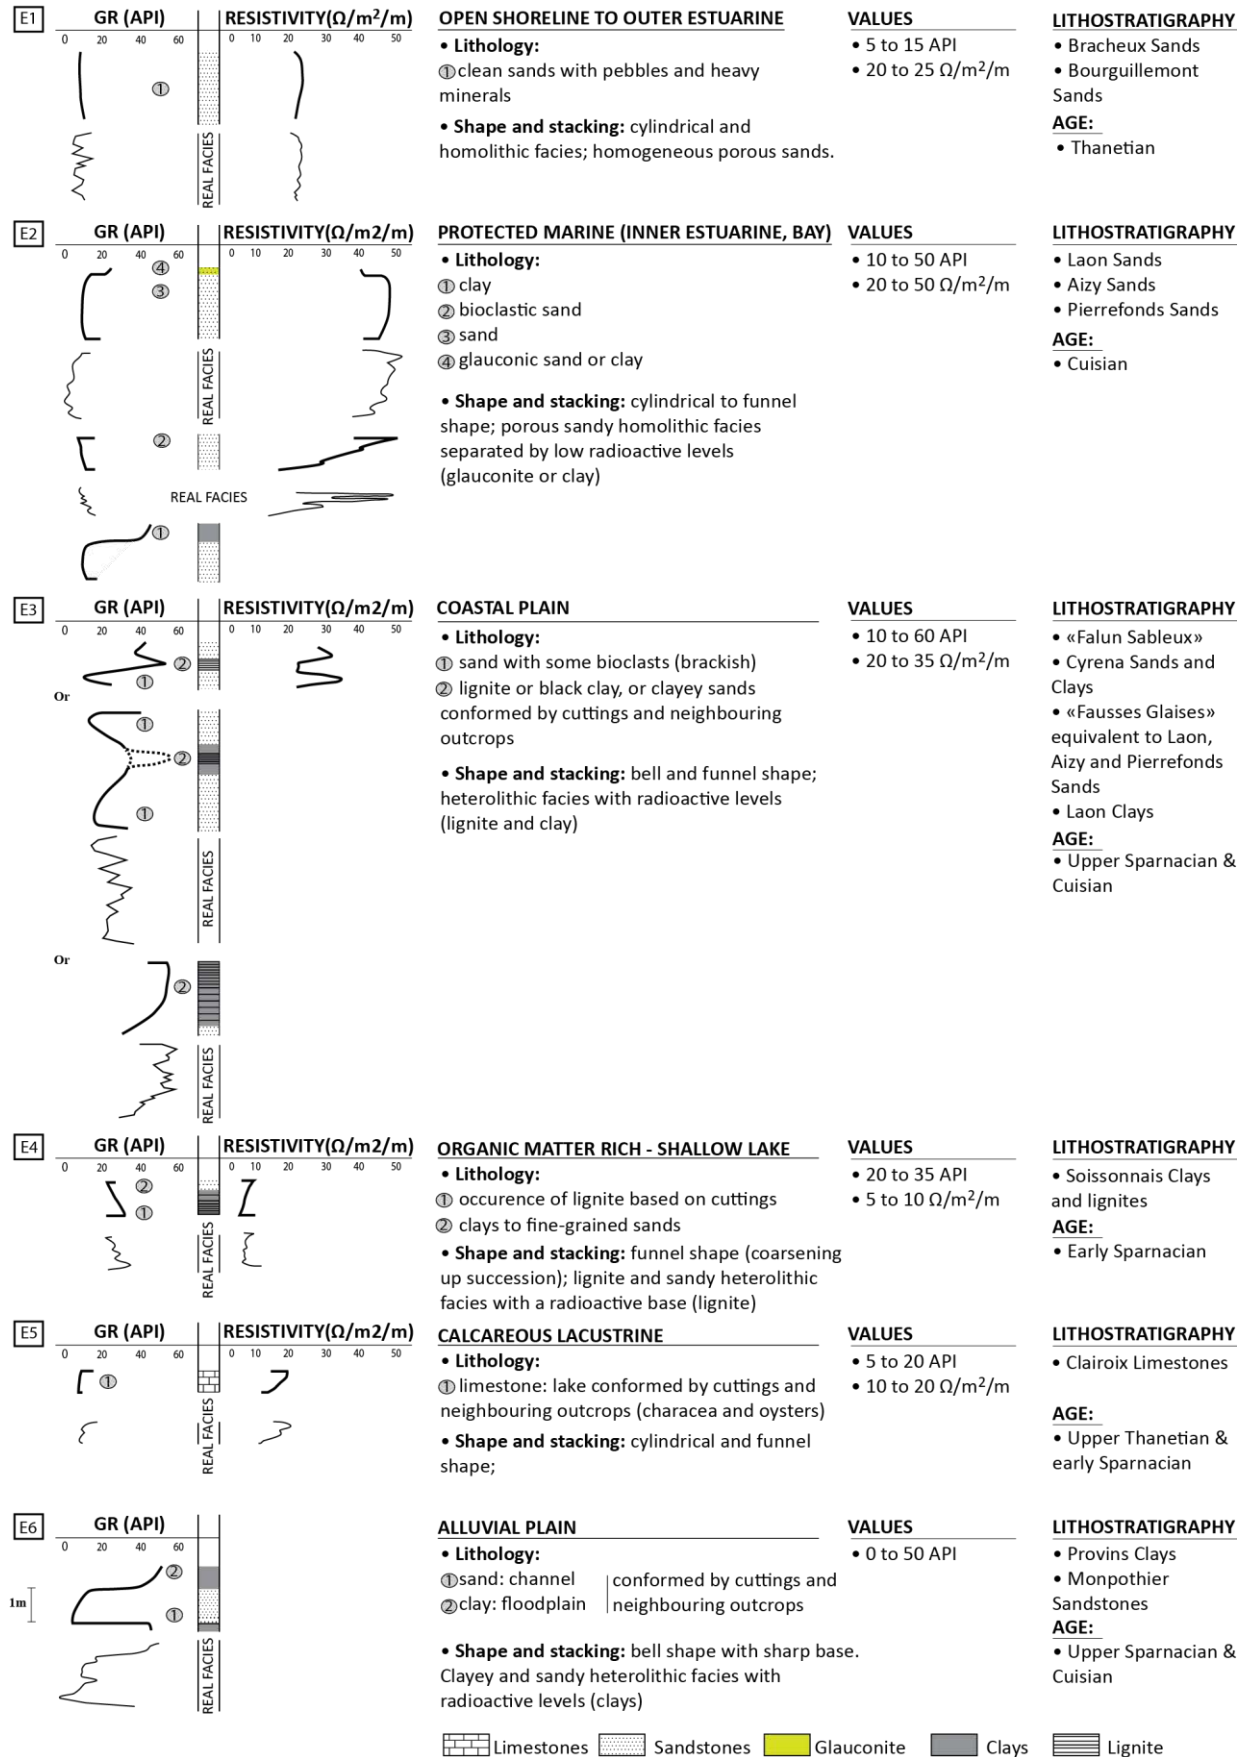 E1
GR (API)
0 20 40 60
RESISTIVITY(Ω/m²/m)
0 10 20 30 40 50
1
REAL FACIES
OPEN SHORELINE TO OUTER ESTUARINE
• Lithology:
1 clean sands with pebbles and heavy
minerals
• Shape and stacking: cylindrical and
homolithic facies; homogeneous porous sands.
VALUES
• 5 to 15 API
• 20 to 25 Ω/m²/m
LITHOSTRATIGRAPHY
• Bracheux Sands
• Bourguillemont
Sands
AGE:
• Thanetian
E2
GR (API)
0 20 40 60
RESISTIVITY(Ω/m2/m)
0 10 20 30 40 50
4
3
REAL FACIES
2
REAL FACIES
1
PROTECTED MARINE (INNER ESTUARINE, BAY)
• Lithology:
1 clay
2 bioclastic sand
3 sand
4 glauconic sand or clay
• Shape and stacking: cylindrical to funnel
shape; porous sandy homolithic facies
separated by low radioactive levels
(glauconite or clay)
VALUES
• 10 to 50 API
• 20 to 50 Ω/m²/m
LITHOSTRATIGRAPHY
• Laon Sands
• Aizy Sands
• Pierrefonds Sands
AGE:
• Cuisian
E3
GR (API)
0 20 40 60
RESISTIVITY(Ω/m2/m)
0 10 20 30 40 50
2
1
Or
1
2
1
REAL FACIES
Or
2
REAL FACIES
COASTAL PLAIN
• Lithology:
1 sand with some bioclasts (brackish)
2 lignite or black clay, or clayey sands
conformed by cuttings and neighbouring
outcrops
• Shape and stacking: bell and funnel shape;
heterolithic facies with radioactive levels
(lignite and clay)
VALUES
• 10 to 60 API
• 20 to 35 Ω/m²/m
LITHOSTRATIGRAPHY
• «Falun Sableux»
• Cyrena Sands and
Clays
• «Fausses Glaises»
equivalent to Laon,
Aizy and Pierrefonds
Sands
• Laon Clays
AGE:
• Upper Sparnacian &
Cuisian
E4
GR (API)
0 20 40 60
RESISTIVITY(Ω/m2/m)
0 10 20 30 40 50
2
1
REAL FACIES
ORGANIC MATTER RICH - SHALLOW LAKE
• Lithology:
1 occurence of lignite based on cuttings
2 clays to fine-grained sands
• Shape and stacking: funnel shape (coarsening
up succession); lignite and sandy heterolithic
facies with a radioactive base (lignite)
VALUES
• 20 to 35 API
• 5 to 10 Ω/m²/m
LITHOSTRATIGRAPHY
• Soissonnais Clays
and lignites
AGE:
• Early Sparnacian
E5
GR (API)
0 20 40 60
RESISTIVITY(Ω/m2/m)
0 10 20 30 40 50
1
REAL FACIES
CALCAREOUS LACUSTRINE
• Lithology:
1 limestone: lake conformed by cuttings and
neighbouring outcrops (characea and oysters)
• Shape and stacking: cylindrical and funnel
shape;
VALUES
• 5 to 20 API
• 10 to 20 Ω/m²/m
LITHOSTRATIGRAPHY
• Clairoix Limestones
AGE:
• Upper Thanetian &
early Sparnacian
E6
GR (API)
0 20 40 60
2
1m
1
REAL FACIES
ALLUVIAL PLAIN
• Lithology:
1 sand: channel
2 clay: floodplain
conformed by cuttings and
neighbouring outcrops
• Shape and stacking: bell shape with sharp base.
Clayey and sandy heterolithic facies with
radioactive levels (clays)
VALUES
• 0 to 50 API
LITHOSTRATIGRAPHY
• Provins Clays
• Monpothier
Sandstones
AGE:
• Upper Sparnacian &
Cuisian
Limestones Sandstones Glauconite Clays Lignite